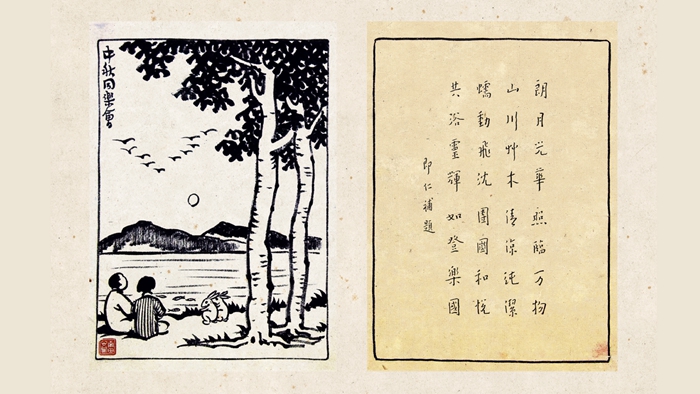 中秋同樂會
朗月光華照臨万物
山川艸木清涼純潔
蠕動飛沈團圞和悅
共浴靈輝如登樂國
即仁補題